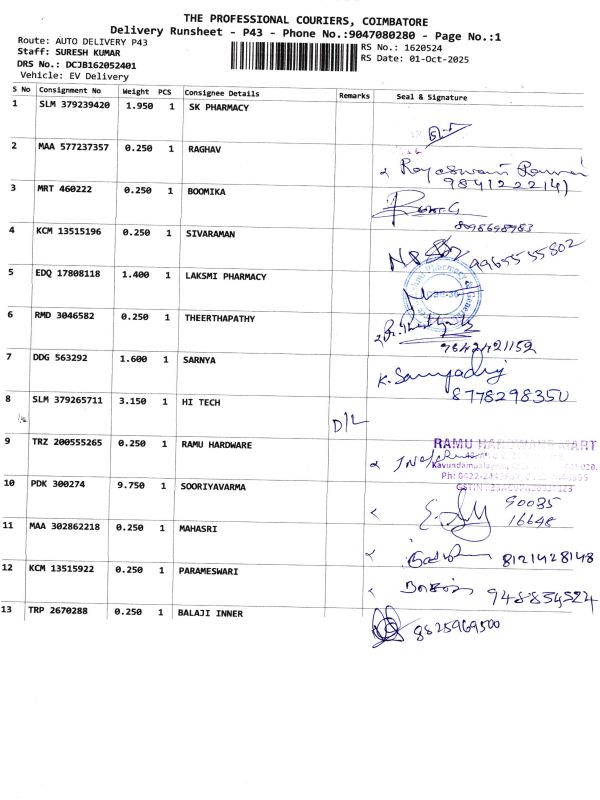 THE PROFESSIONAL COURIERS, COIMBATORE
Delivery Runsheet - P43 - Phone No.:9047080280 - Page No.:1
Route: AUTO DELIVERY P43
Staff: SURESH KUMAR
DRS No.: DCJB162052401
Vehicle: EV Delivery
RS No.: 1620524
RS Date: 01-Oct-2025
S No Consignment No Weight PCS Consignee Details Remarks Seal & Signature
1 SLM 379239420 1.950 1 SK PHARMACY
2 MAA 577237357 0.250 1 RAGHAV
3 MRT 460222 0.250 1 BOOMIKA
8098698983
4 KCM 13515196 0.250 1 SIVARAMAN
9965555802
5 EDQ 17808118 1.400 1 LAKSMI PHARMACY
6 RMD 3046582 0.250 1 THEERTHAPATHY
9842421152
7 DDG 563292 1.600 1 SARNYA
8778298350
8 SLM 379265711 3.150 1 HI TECH D/L
9 TRZ 200555265 0.250 1 RAMU HARDWARE
RAMU HARDWARE MART
10 PDK 300274 9.750 1 SOORIYAVARMA
90035
16648
11 MAA 302862218 0.250 1 MAHASRI
8121428148
12 KCM 13515922 0.250 1 PARAMESWARI
948854524
13 TRP 2670288 0.250 1 BALAJI INNER
8825969500